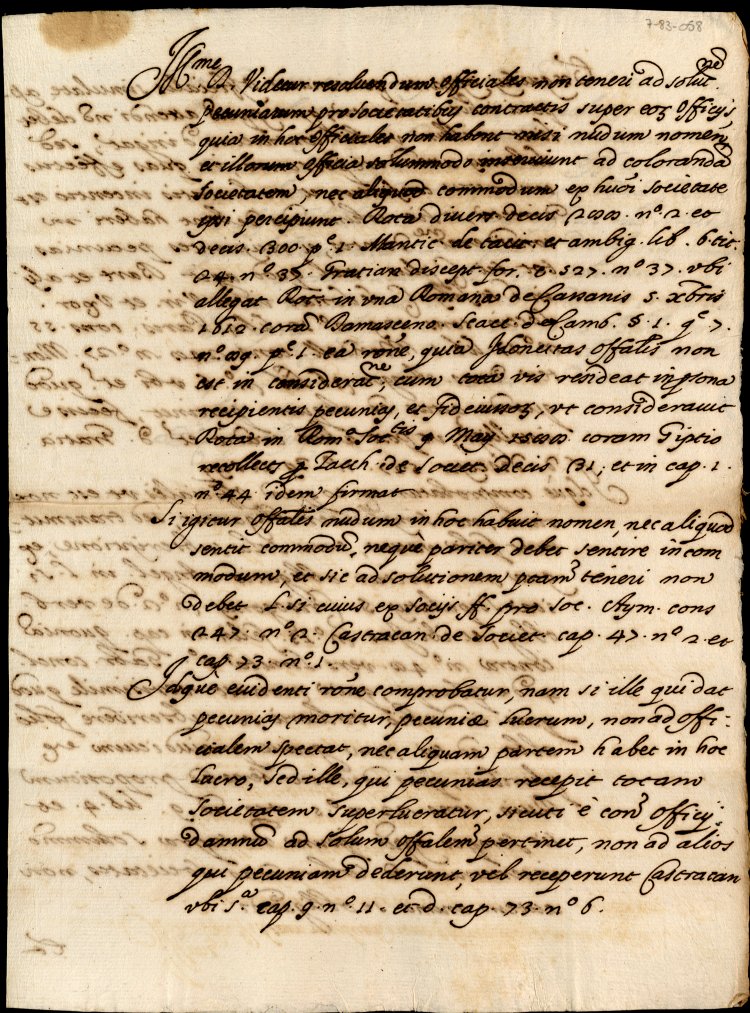 7-83-058
Ill.me
R. Videtur resoluendum officiales non teneri ad solut.ne
Pecuniarum pro societatibus contractis super eoꝝ officijs
quia in hoc officiales non habent nisi nudum nomen,
et illorum officia solummodo inseruiunt ad colorandã
societatem, nec aliquod commodum ex huõi societate
ipsi percipiunt. Rota diuers decis n.º 2. et
decis. 300. p.e 1. Mantic. de tacit. et ambig. lib. 6. tit.
24. n.º 37. Gratian discept for. c. 527. n.º 37. vbi
allegat Rot. in vna Romana de 5. Xbris
1612. corã Damasceno. Scacc. de Camb. §. 1. q.e 7.
n.º p.e 1. ea rõne, quia Idoneitas offalis non
est in considerat.ne, cum tota vis resideat in psona
recipientis pecunias, et fideiussoꝝ, vt considerauit
Rota in Rom.a Soc.tis 9 Maij coram
recollect p Zacch. de Societ. Decis 31, et in cap. 1.
n.º 44 idem firmat
Si igitur offalis nudum in hoc habuit nomen, nec aliquod
sentit commodũ, nequè pariter debet sentire incom
modum, et sic ad solutionem pctam teneri non
debet L. si cuius ex socijs ff. pro soc. Aym. cons
247. n.º 2. Castracan de Societ. cap. 47. n.º 2. et
cap. 73. n.º 1.
Idquè euidenti rõne comprobatur, nam si ille qui dat
pecunias moritur, pecuniæ lucrum, non ad offi-
cialem spectat, nec aliquam partem habet in hoc
lucro, sed ille, qui pecunias recepit totam
societatem superlucratur, sicuti è con officij
damnũ ad solum offalem pertinet, non ad alios
qui pecuniam dederunt, vel receperunt Castracan
vbi s.a cap. 9. n.º 11. et d. cap. 73. n.º 6.